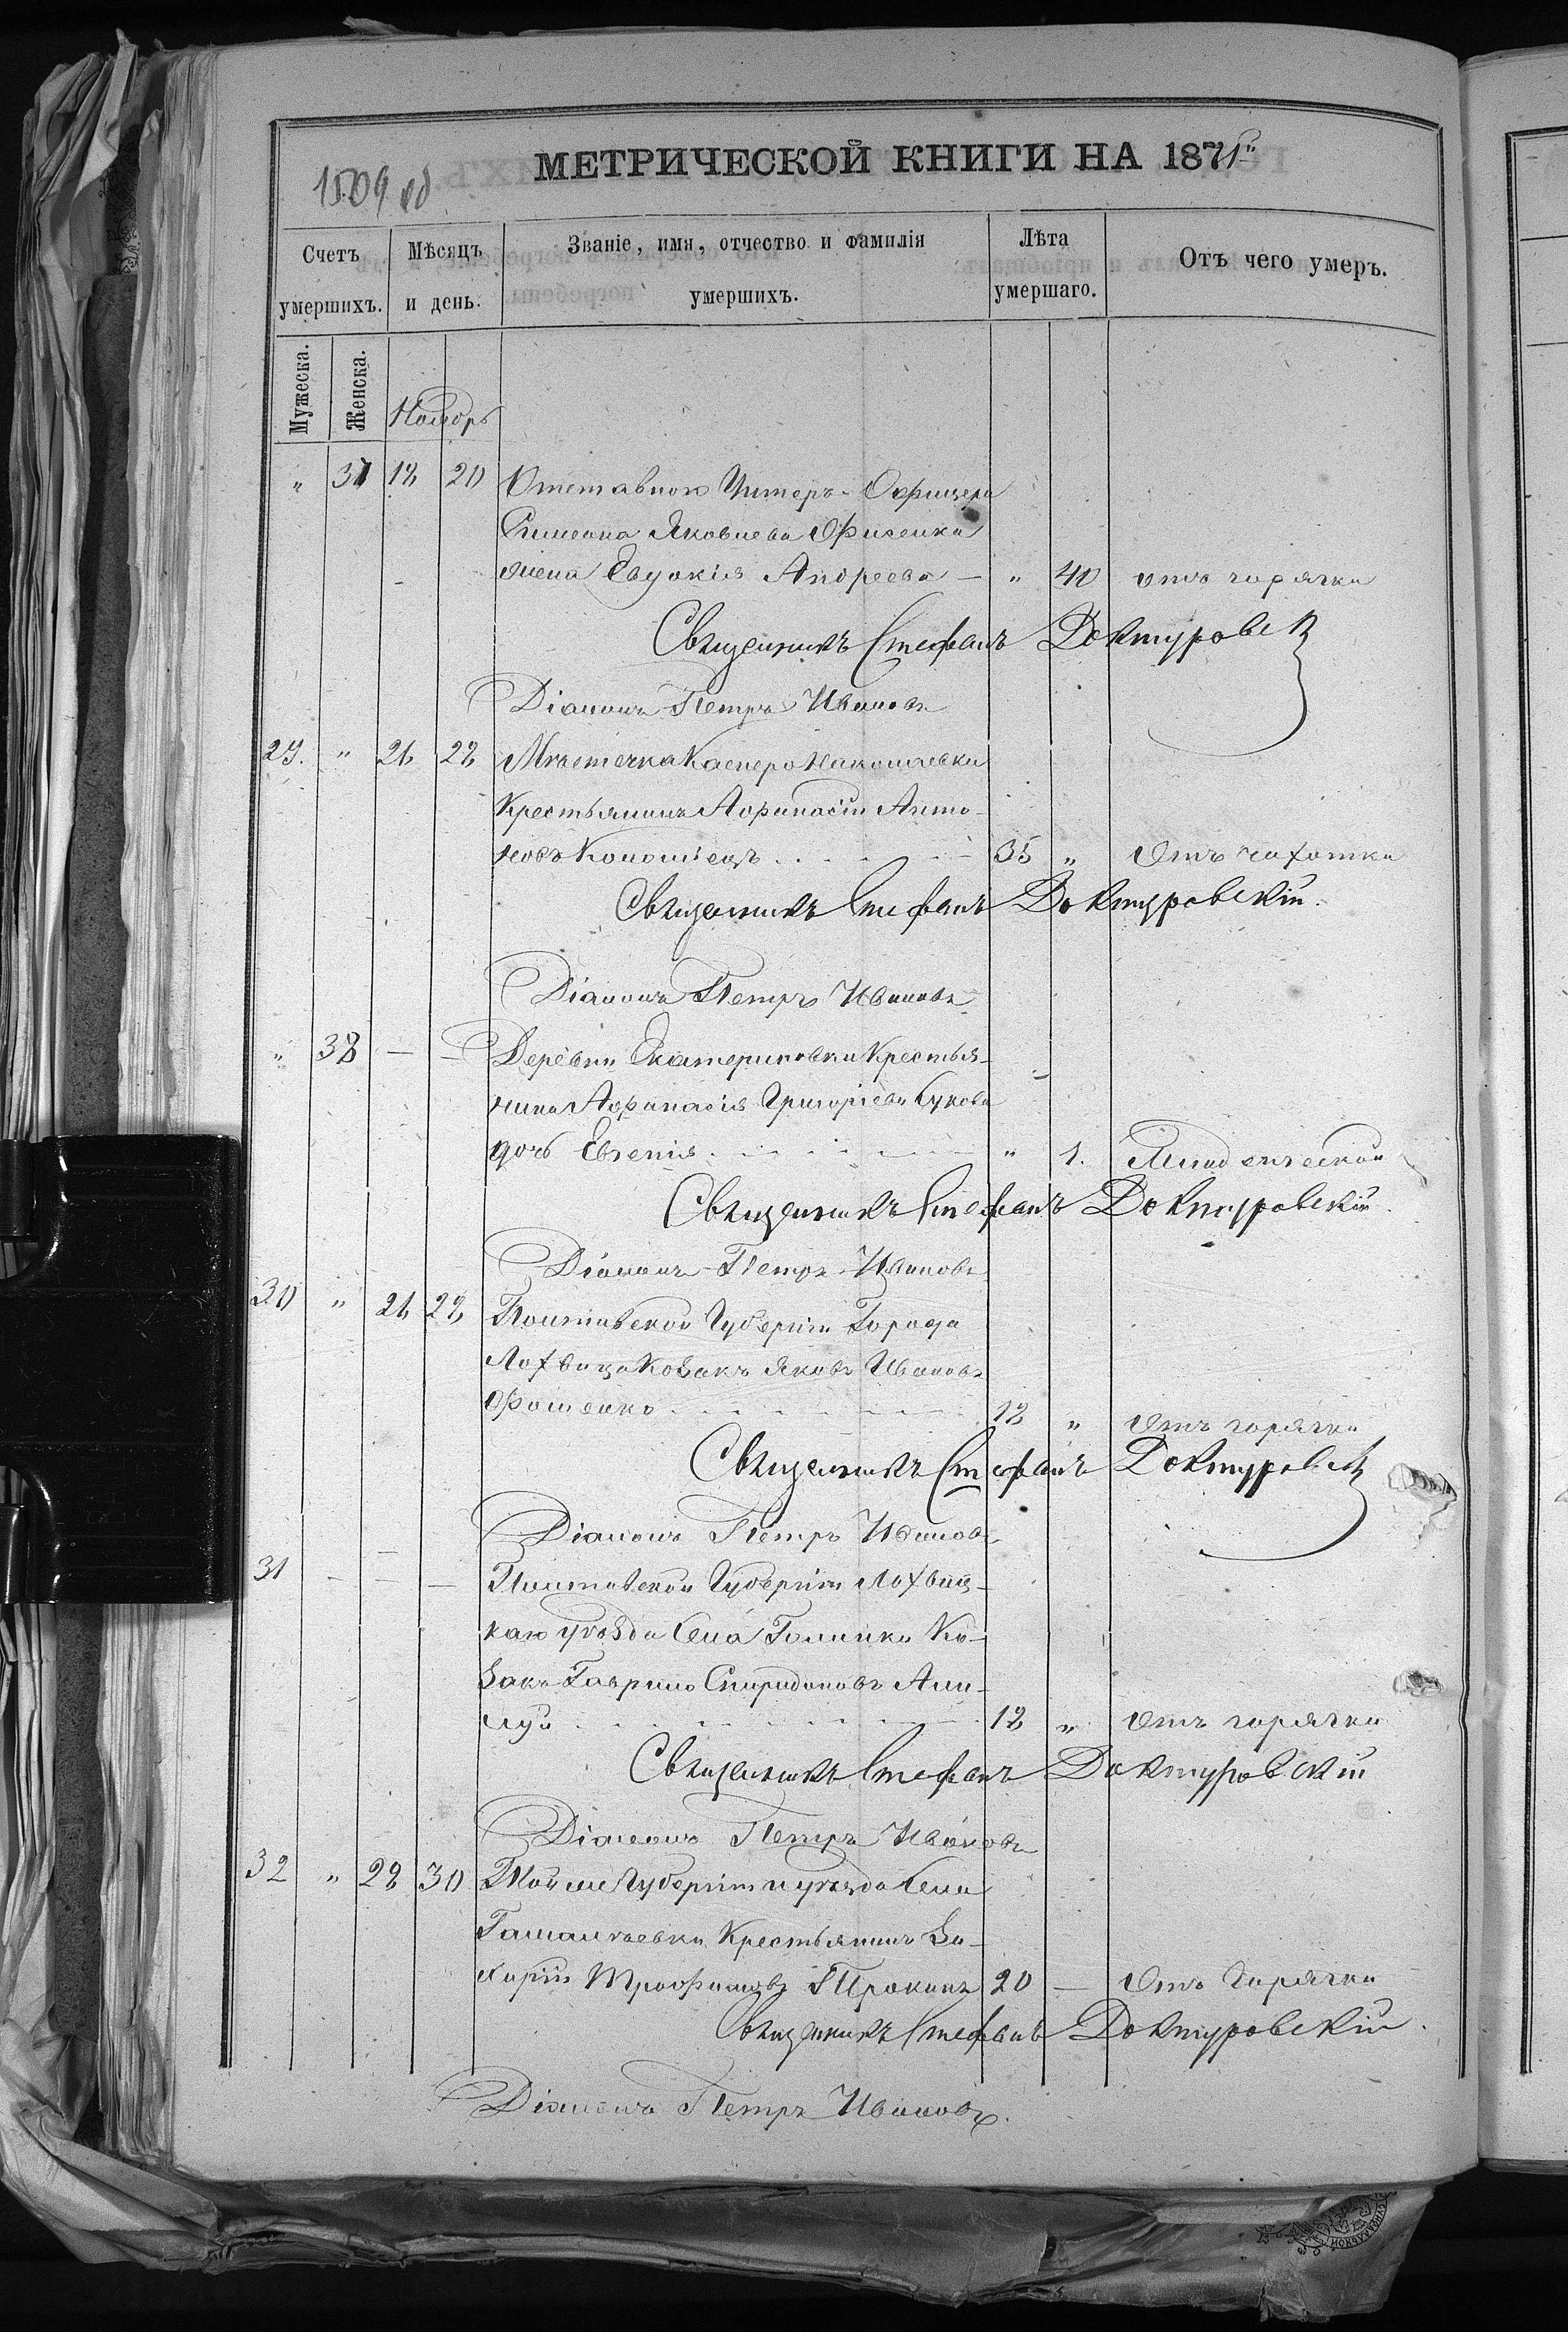 МЕТРИЧЕСКОЙ КНИГИ НА 1871
1509 об
Счетъ умершихъ.
Мѣсяцъ и день.
Званіе, имя, отчество и фамилія умершихъ.
Лѣта умершаго.
Отъ чего умеръ.
Мужеска.
Женска.
Ноябрь
" 37 18 20 Отставного Унтеръ-Офицера
Симеона Яковлева
жена Евдокія Андреева — " 40 отъ горячки
Священникъ Стефанъ Доктуровск
Діаконъ Петръ Ивановъ
29. " 21 22 Мѣстечка Касперо Николаевки
Крестьянинъ Афанасій Анто-
новъ 35 " Отъ чахотки
Священникъ Стефанъ Доктуровскій.
Діаконъ Петръ Ивановъ
" 38 — — Деревни Екатериновки Крестья-
нина Афанасія Григоріева
дочь Евгенія " 1. Младенческой
Священникъ Стефанъ Доктуровскій.
Діаконъ Петръ Ивановъ
30 " 21 22 Полтавской Губерніи Города
Лохвица Козакъ Яковъ Ивановъ
18 " Отъ горячки
Священникъ Стефанъ Доктуровск
Діаконъ Петръ Ивановъ
31 — — — Полтавской Губерніи Лохвиц-
каго уѣзда Села Ко-
закъ Гаврило Спиридоновъ
18 " Отъ горячки
Священникъ Стефанъ Доктуровскій
Діаконъ Петръ Ивановъ
32 " 28 30 Той же Губерніи и уѣзда Села
Крестьянинъ За-
харій Трофимовъ 20 — Отъ Горячки
Священникъ Стефанъ Доктуровскій.
Діаконъ Петръ Ивановъ.